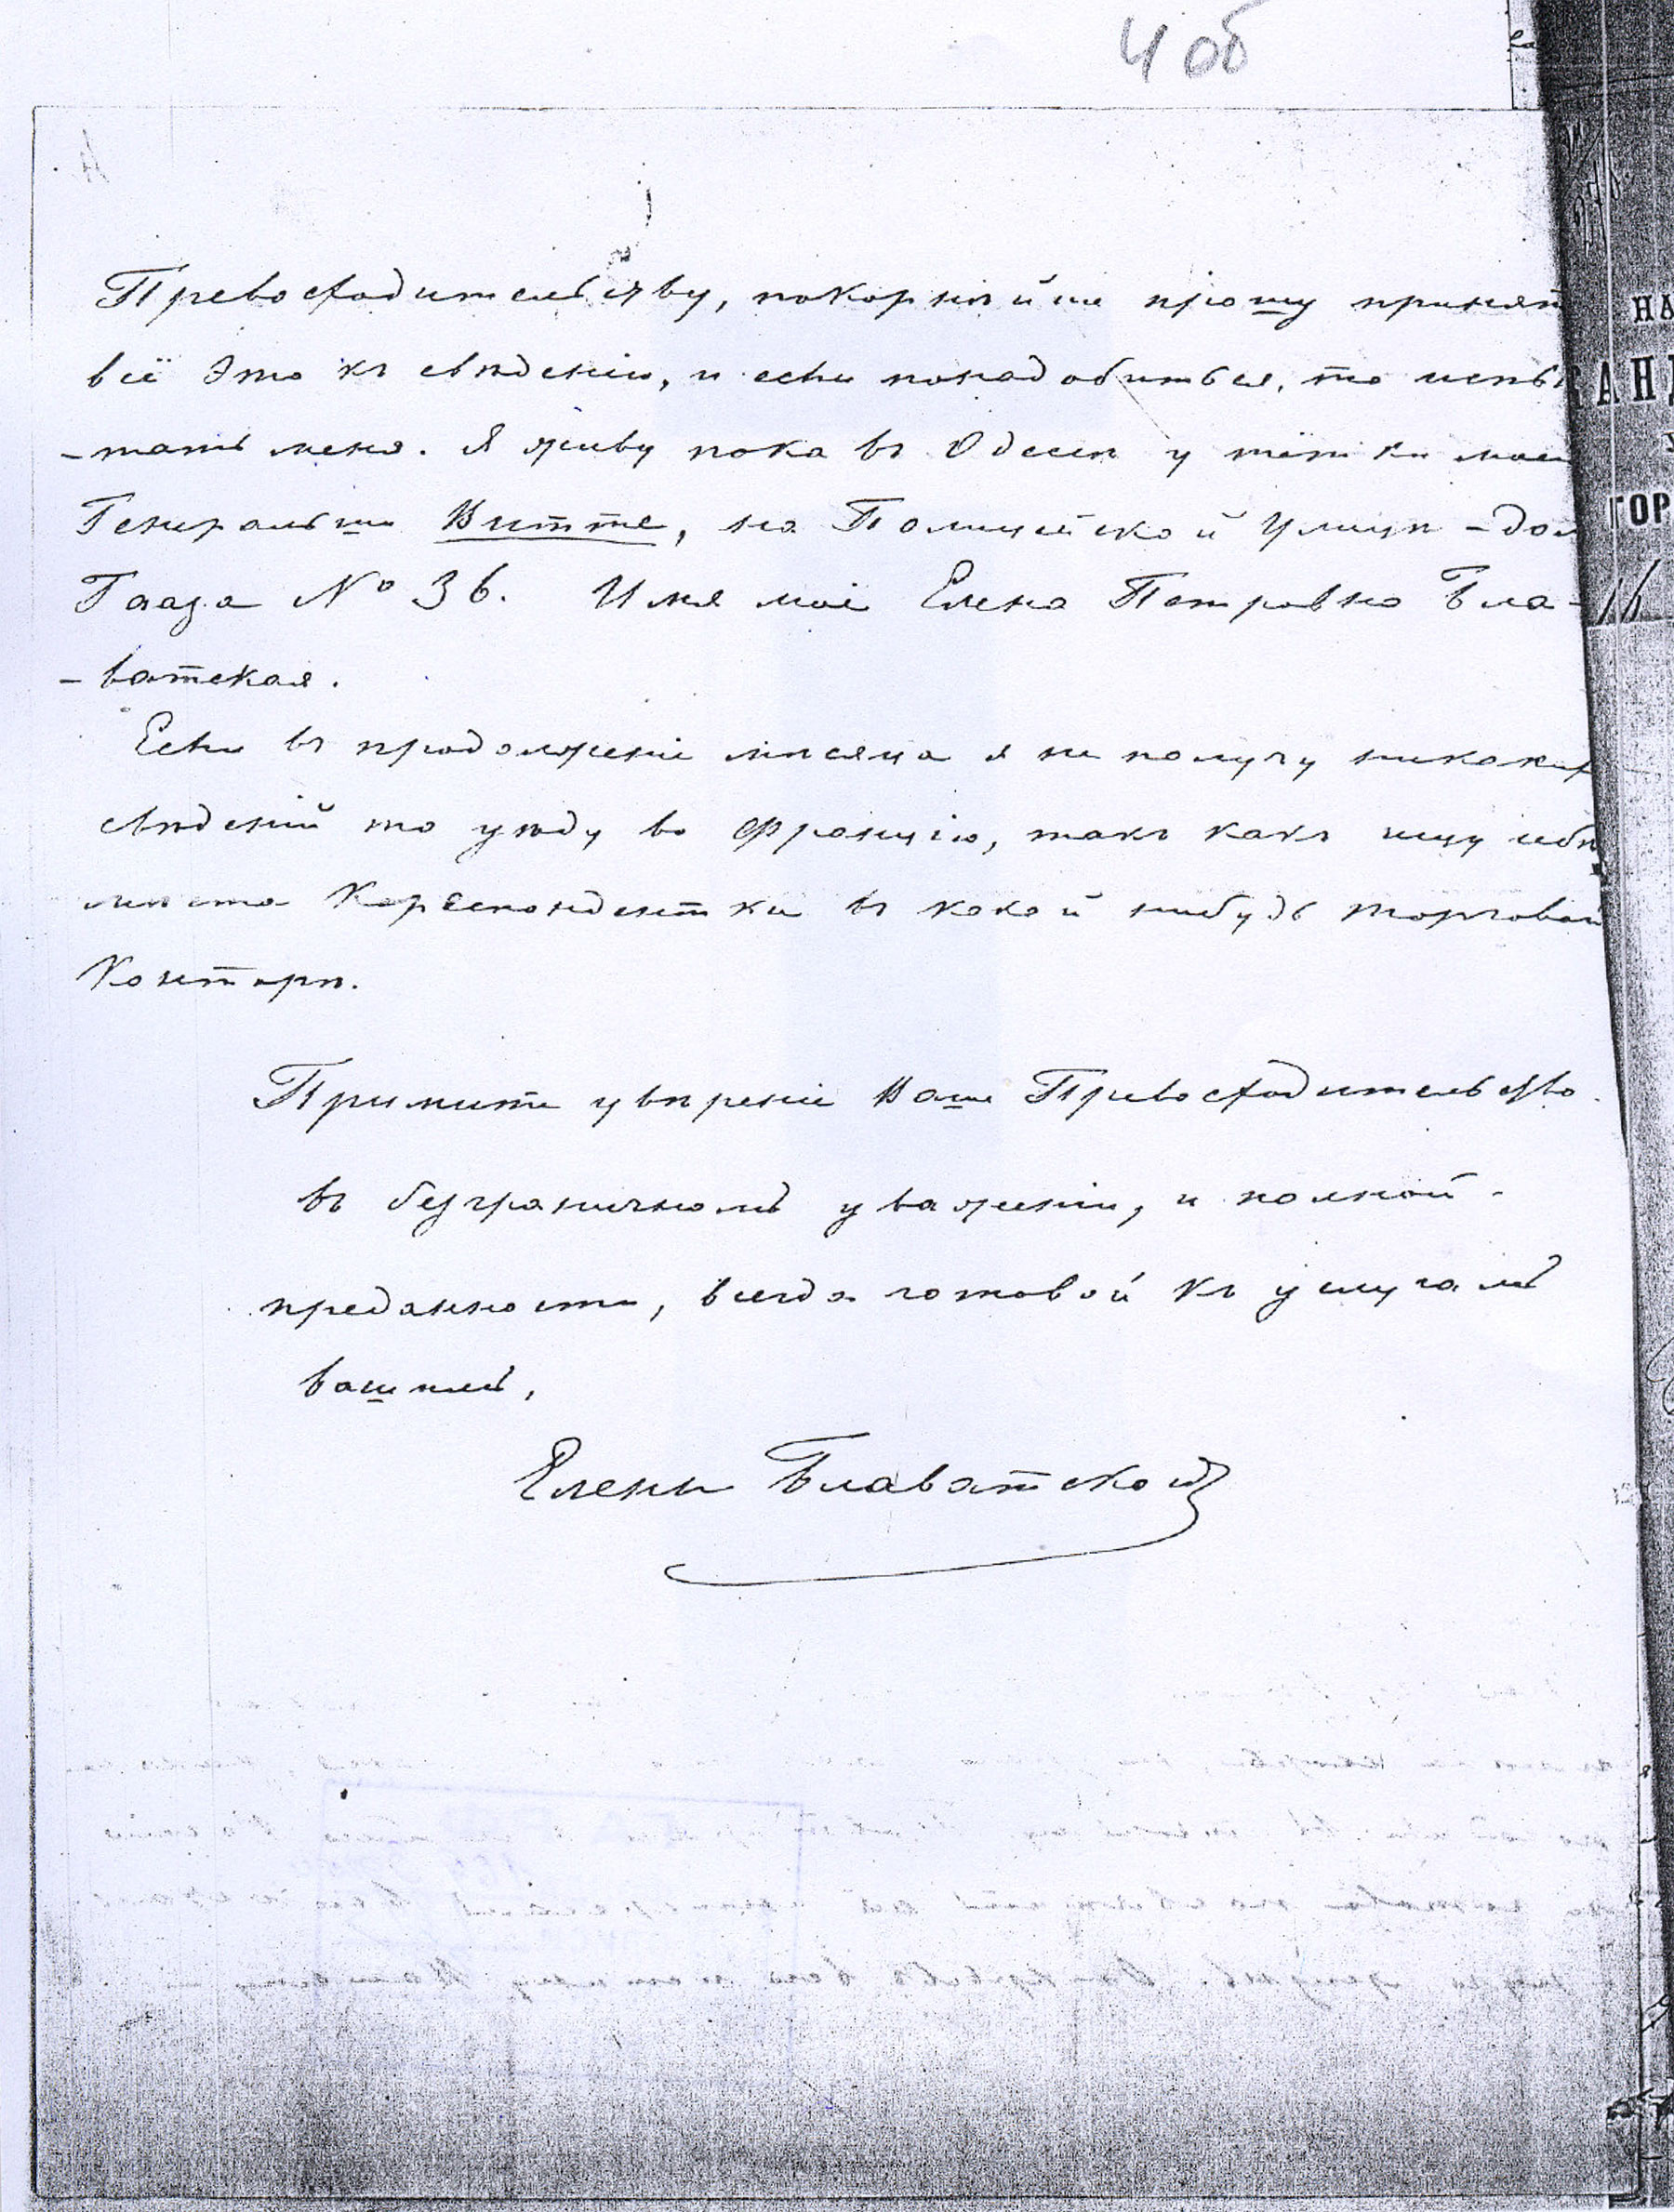 4 об
Превосходительству, покорнѣйше прошу принят
всё это къ свѣденію, и если понадобиться, то испы
-тать меня. Я живу пока въ Одессѣ у тётки моей
Генеральши Витте, на Полицейской Улицѣ – дом
Гааза № 36. Имя моё Елена Петровна Бла-
-ватская.
Если въ продолженіе мѣсяца я не получу никаких
свѣдений то уѣду во Францію, такъ какъ ищу себѣ
мѣста Корреспондентки въ какой нибудь торговой
Конторѣ.
Примите увѣреніе Ваше Превосходительство
въ безграничномъ уваженіи, и полной
преданности, всегда готовой къ услугамъ
вашимъ,
Елены Блаватской
НА
АНД
ГОР